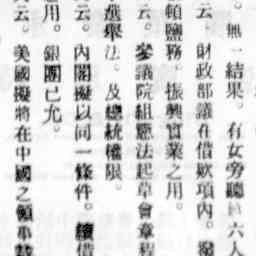 。無一結果。有女旁聽員六人
云。財政部議在借欵項內。撥
頓鹽務。振興實業之用。
云。參議院組憲法起草會章程
選舉法。及總統權限。
云。內閣擬以同一條件。續借
用。銀團已允。
云。美國擬將在中國之領事裁